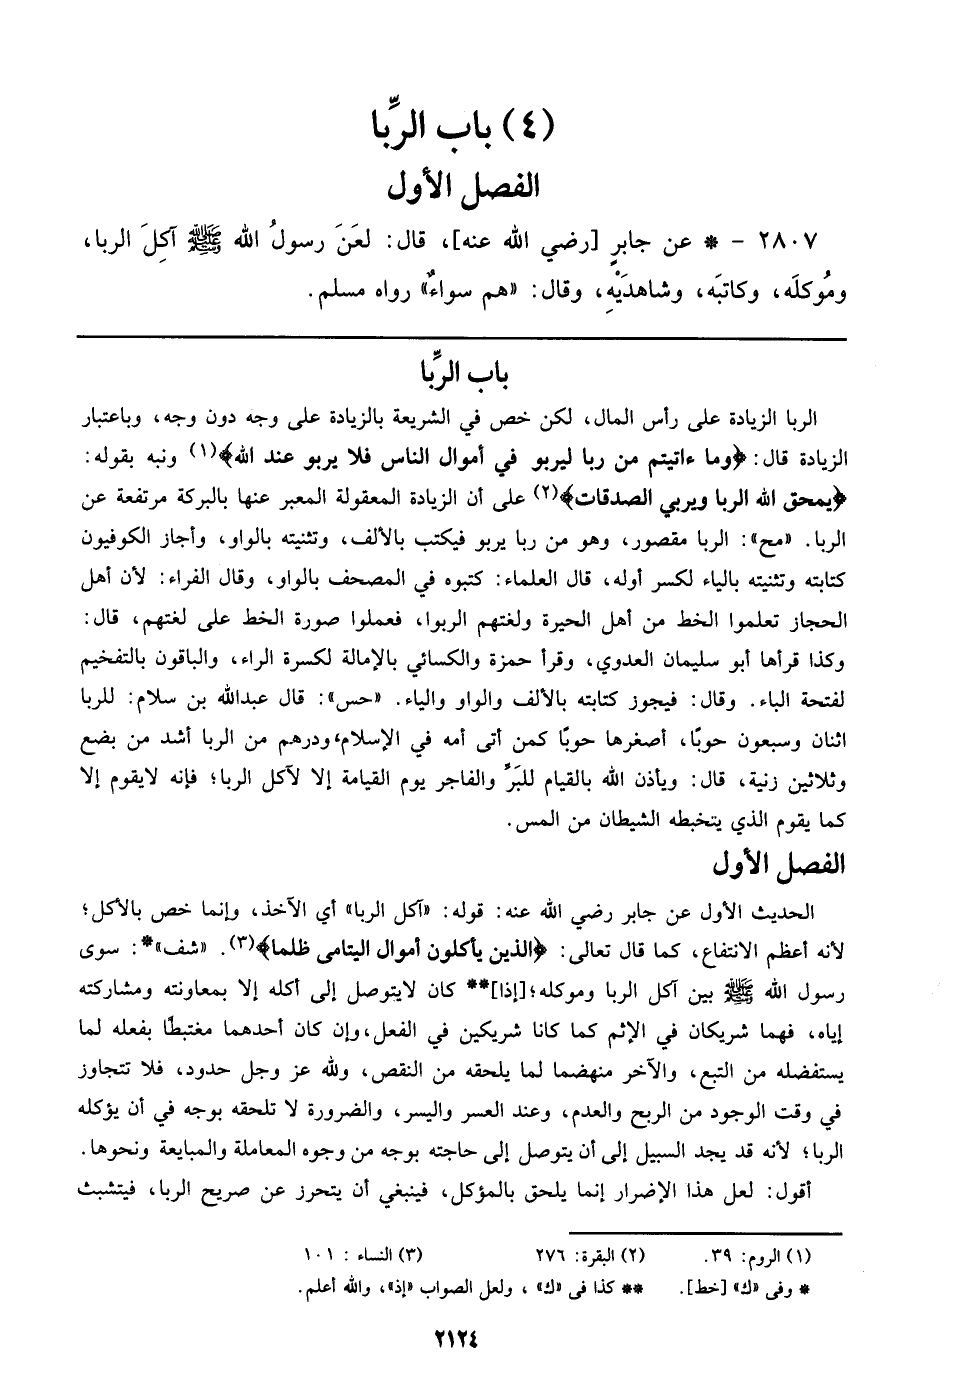 (٤) باب الرِّبا
الفصل الأول
٢٨٠٧ - * عن جابرٍ [رضي الله عنه]، قال: لعَنَ رسولُ الله ﷺ آكِلَ الربا،
ومُوكلَه، وكاتبَه، وشاهدَيْهِ، وقال: «هم سواءٌ» رواه مسلم.
باب الرِّبا
الربا الزيادة على رأس المال، لكن خص في الشريعة بالزيادة على وجه دون وجه، وباعتبار
الزيادة قال: ﴿وما ءاتيتم من ربا ليربو في أموال الناس فلا يربو عند الله﴾(١) ونبه بقوله:
﴿يمحق الله الربا ويربي الصدقات﴾(٢) على أن الزيادة المعقولة المعبر عنها بالبركة مرتفعة عن
الربا. «مح»: الربا مقصور، وهو من ربا يربو فيكتب بالألف، وتثنيته بالواو، وأجاز الكوفيون
كتابته وتثنيته بالياء لكسر أوله، قال العلماء: كتبوه في المصحف بالواو، وقال الفراء: لأن أهل
الحجاز تعلموا الخط من أهل الحيرة ولغتهم الربوا، فعملوا صورة الخط على لغتهم، قال:
وكذا قرأها أبو سليمان العدوي، وقرأ حمزة والكسائي بالإمالة لكسرة الراء، والباقون بالتفخيم
لفتحة الباء. وقال: فيجوز كتابته بالألف والواو والياء. «حس»: قال عبدالله بن سلام: للربا
اثنان وسبعون حوبًا، أصغرها حوبًا كمن أتى أمه في الإسلام، ودرهم من الربا أشد من بضع
وثلاثين زنية، قال: ويأذن الله بالقيام للبَرِّ والفاجر يوم القيامة إلا لآكل الربا؛ فإنه لايقوم إلا
كما يقوم الذي يتخبطه الشيطان من المس.
الفصل الأول
الحديث الأول عن جابر رضي الله عنه: قوله: «آكل الربا» أي الآخذ، وإنما خص بالأكل؛
لأنه أعظم الانتفاع، كما قال تعالى: ﴿الذين يأكلون أموال اليتامى ظلما﴾(٣). «شف»*: سوى
رسول الله ﷺ بين آكل الربا وموكله؛[إذا]** كان لايتوصل إلى أكله إلا بمعاونته ومشاركته
إياه، فهما شريكان في الإثم كما كانا شريكين في الفعل،وإن كان أحدهما مغتبطًا بفعله لما
يستفضله من التبع، والآخر منهضما لما يلحقه من النقص، ولله عز وجل حدود، فلا تتجاوز
في وقت الوجود من الربح والعدم، وعند العسر واليسر، والضرورة لا تلحقه بوجه في أن يؤكله
الربا؛ لأنه قد يجد السبيل إلى أن يتوصل إلى حاجته بوجه من وجوه المعاملة والمبايعة ونحوها.
أقول: لعل هذا الإضرار إنما يلحق بالمؤكل، فينبغي أن يتحرز عن صريح الربا، فيتشبث
(١) الروم: ٣٩. (٢) البقرة: ٢٧٦ (٣) النساء : ١٠١
* وفى «ك» [خط]. ** كذا فى «ك» ، ولعل الصواب «إذ»، والله أعلم.
٢١٢٤